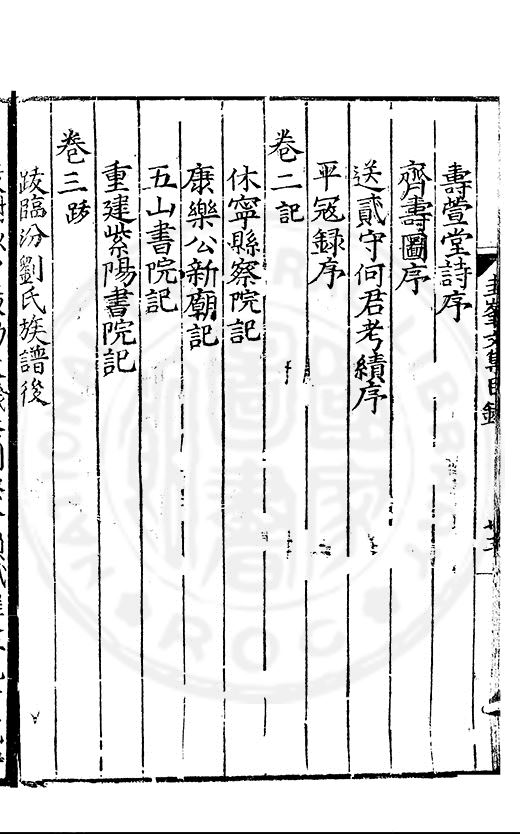 壽萱堂詩序
齊壽圖序
送貳守何君考績序
平冦録序
卷二記
休寧縣察院記
康樂公新廟記
五山書院記
重建紫陽書院記
卷三跋
跋臨汾劉氏族譜後